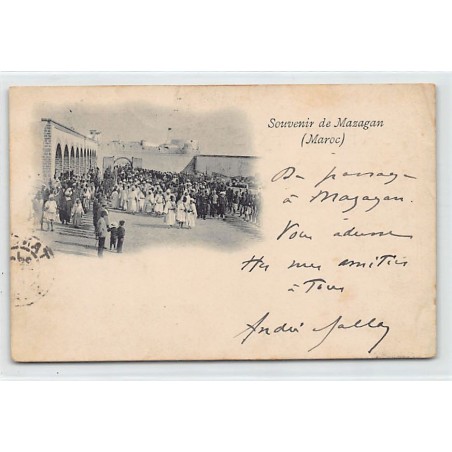 Souvenir de Mazagan
(Maroc)
De passage
à Mazagan.
Vous adresse
mes amitiés
à Tous
André